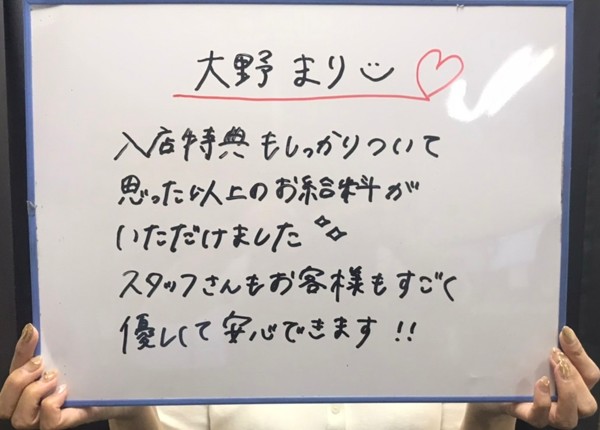 大野まり
入店特典もしっかりついて
思った以上のお給料が
いただけました
スタッフさんもお客様もすごく
優しくて安心できます!!